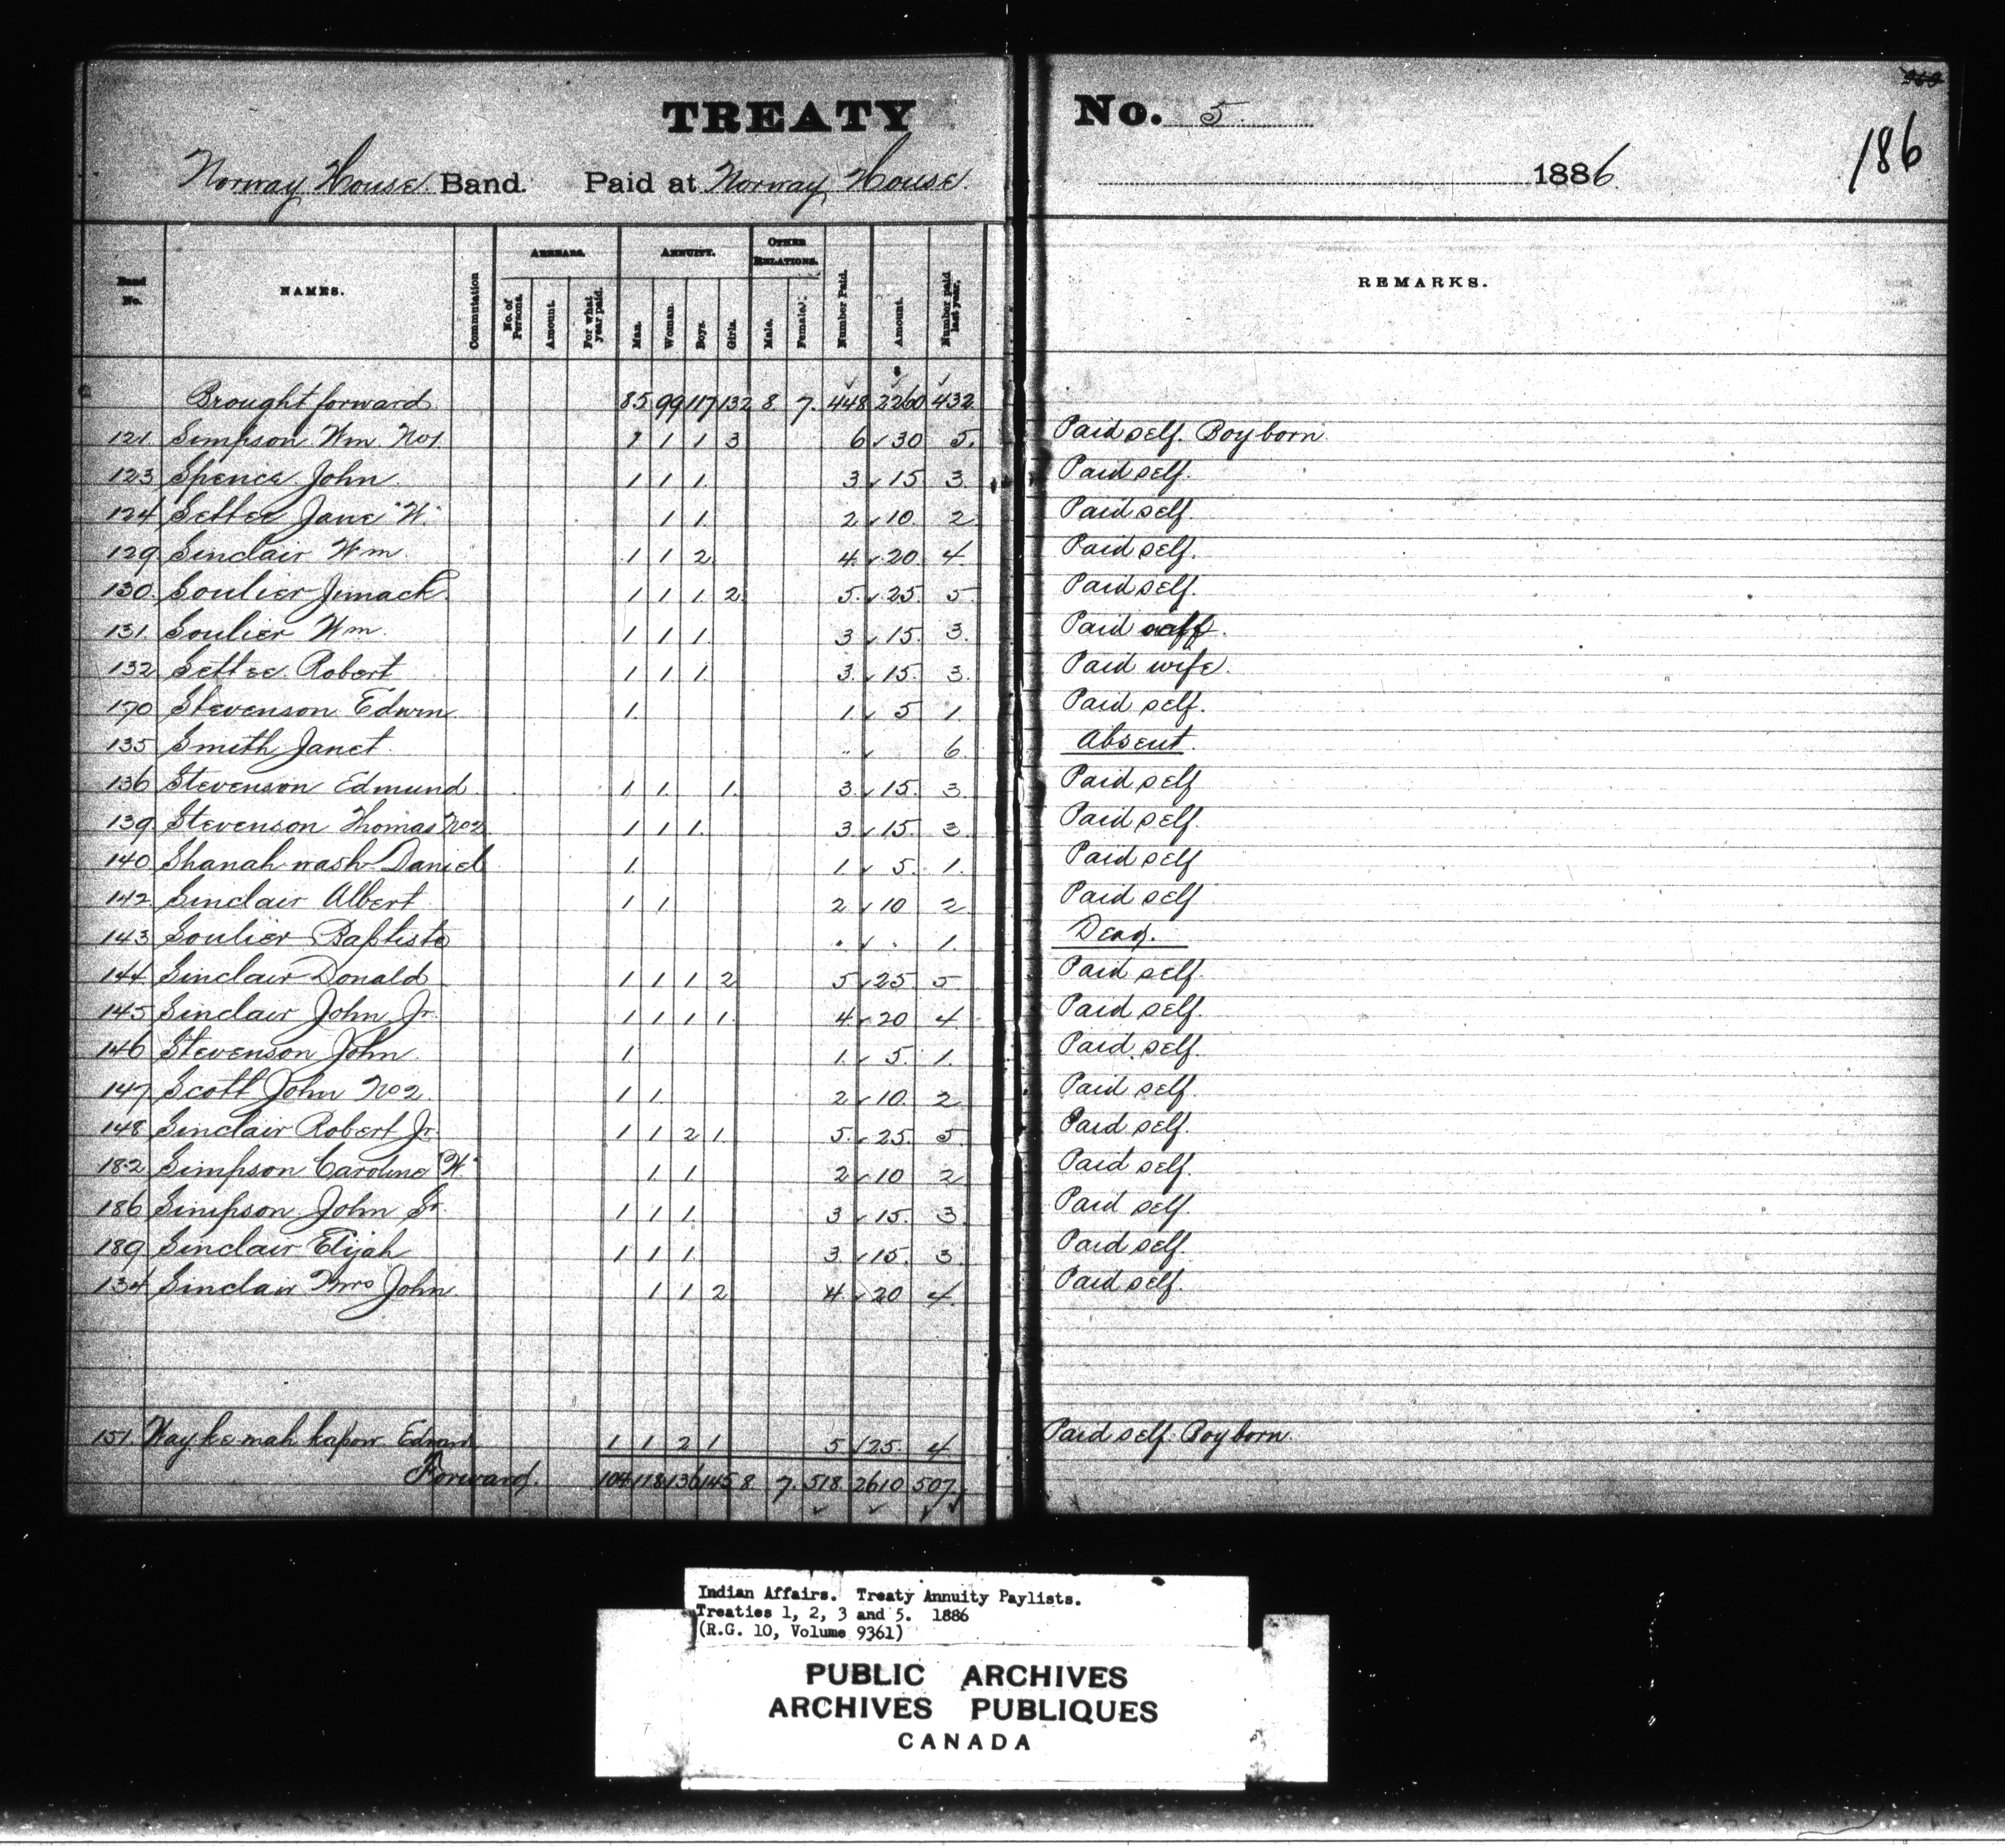 TREATY No. 5
186
Norway House Band. Paid at Norway House 1886
Band No. NAMES. Commutation ARREARS. No. of Persons. Amount. For what year paid. ANNUITY. Man. Woman. Boys. Girls. OTHER RELATIONS. Male. Female. Number Paid. Amount. Number paid last year. REMARKS.
Brought forward 85 99 117 132 8 7 448 2260 432
121 Simpson Wm No1 1 1 1 3 6 30 5 Paid self. Boy born
123 Spence John 1 1 1 3 15 3 Paid self.
124 Settee Jane "W" 1 1 2 10 2 Paid self.
129 Sinclair Wm 1 1 2 4 20 4 Paid self.
130 Soulier Jimack 1 1 1 2 5 25 5 Paid self.
131 Soulier Wm 1 1 1 3 15 3 Paid
132 Settee Robert 1 1 1 3 15 3 Paid wife.
170 Stevenson Edwin 1 1 5 1 Paid self.
135 Smith Janet 6 Absent.
136 Stevenson Edmund 1 1 1 3 15 3 Paid self
139 Stevenson Thomas No2 1 1 1 3 15 3 Paid self.
140 Shanah wash Daniel 1 1 5 1 Paid self
142 Sinclair Albert 1 1 2 10 2 Paid self
143 Soulier Baptiste 1 Dead.
144 Sinclair Donald 1 1 1 2 5 25 5 Paid self.
145 Sinclair John Jr. 1 1 1 1 4 20 4 Paid self.
146 Stevenson John 1 1 5 1 Paid self.
147 Scott John No2 1 1 2 10 2 Paid self.
148 Sinclair Robert Jr. 1 1 2 1 5 25 5 Paid self.
182 Simpson Caroline "W" 1 1 2 10 2 Paid self.
186 Simpson John Sr. 1 1 1 3 15 3 Paid self.
189 Sinclair Elijah 1 1 1 3 15 3 Paid self.
134 Sinclair Mrs John 1 1 2 4 20 4 Paid self.
151 Way ke mah kapow Edward 1 1 2 1 5 25 4 Paid self. Boy born
Forward. 104 118 136 145 8 7 518 2610 507
Indian Affairs. Treaty Annuity Paylists.
Treaties 1, 2, 3 and 5. 1886
(R.G. 10, Volume 9361)
PUBLIC ARCHIVES
ARCHIVES PUBLIQUES
CANADA